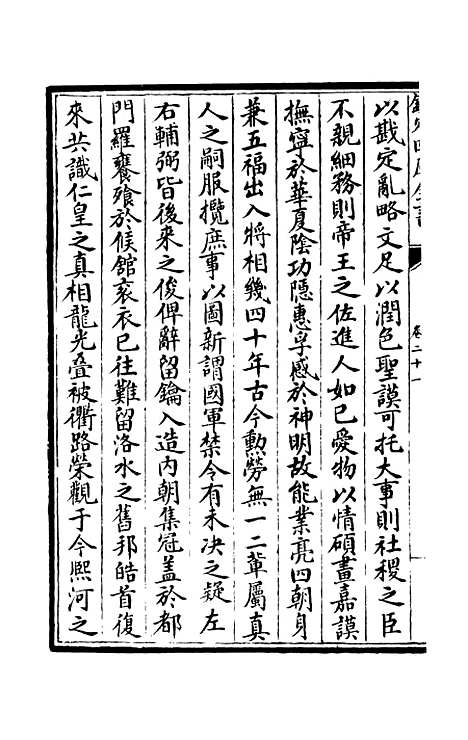 欽定四庫全書
卷二十一
以戡定亂略文足以潤色聖謨可托大事則社稷之臣
不親細務則帝王之佐進人如已愛物以情碩畫嘉謨
撫寧於華夏陰功隱惠孚感於神明故能業亮四朝身
兼五福出入將相幾四十年古今勲勞無一二軰屬真
人之嗣服攬庶事以圖新謂國軍禁今有未决之疑左
右輔弼皆後來之俊俾辭留鑰入造内朝集冠盖於都
門羅饔飱於候舘衮衣已往難留洛水之舊邦皓首復
來共識仁皇之真相龍光叠被衢路榮觀于今熙河之